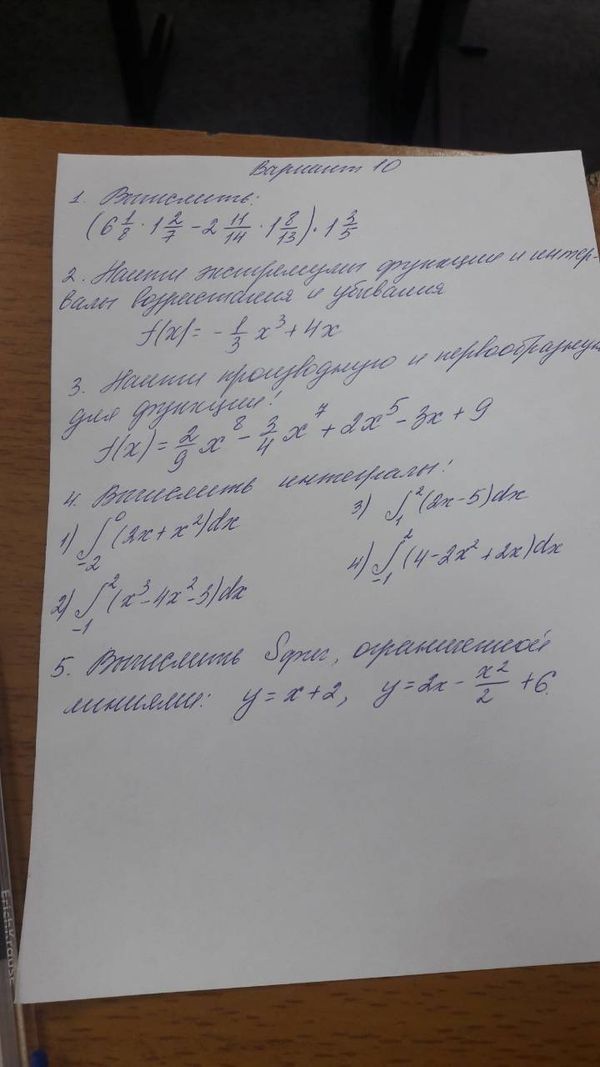 Вариант 10
1. Вычислить:
(6 1/8 · 1 2/7 − 2 11/14 · 1 8/13) · 1 3/5
2. Найти экстремумы функции и интер-
валы возрастания и убывания
f(x) = − 1/3 x³ + 4x
3. Найти производную и первообразную
для функции:
f(x) = 2/9 x⁸ − 3/4 x⁷ + 2x⁵ − 3x + 9
4. Вычислить интегралы:
1) ∫₋₂⁰ (2x + x²)dx
3) ∫₁² (2x − 5)dx
2) ∫₋₁² (x³ − 4x² − 3)dx
4) ∫₋₁² (4 − 2x² + 2x)dx
5. Вычислить Sфиг, ограниченной
линиями: y = x + 2, y = 2x − x²/2 + 6.
ErichKrause